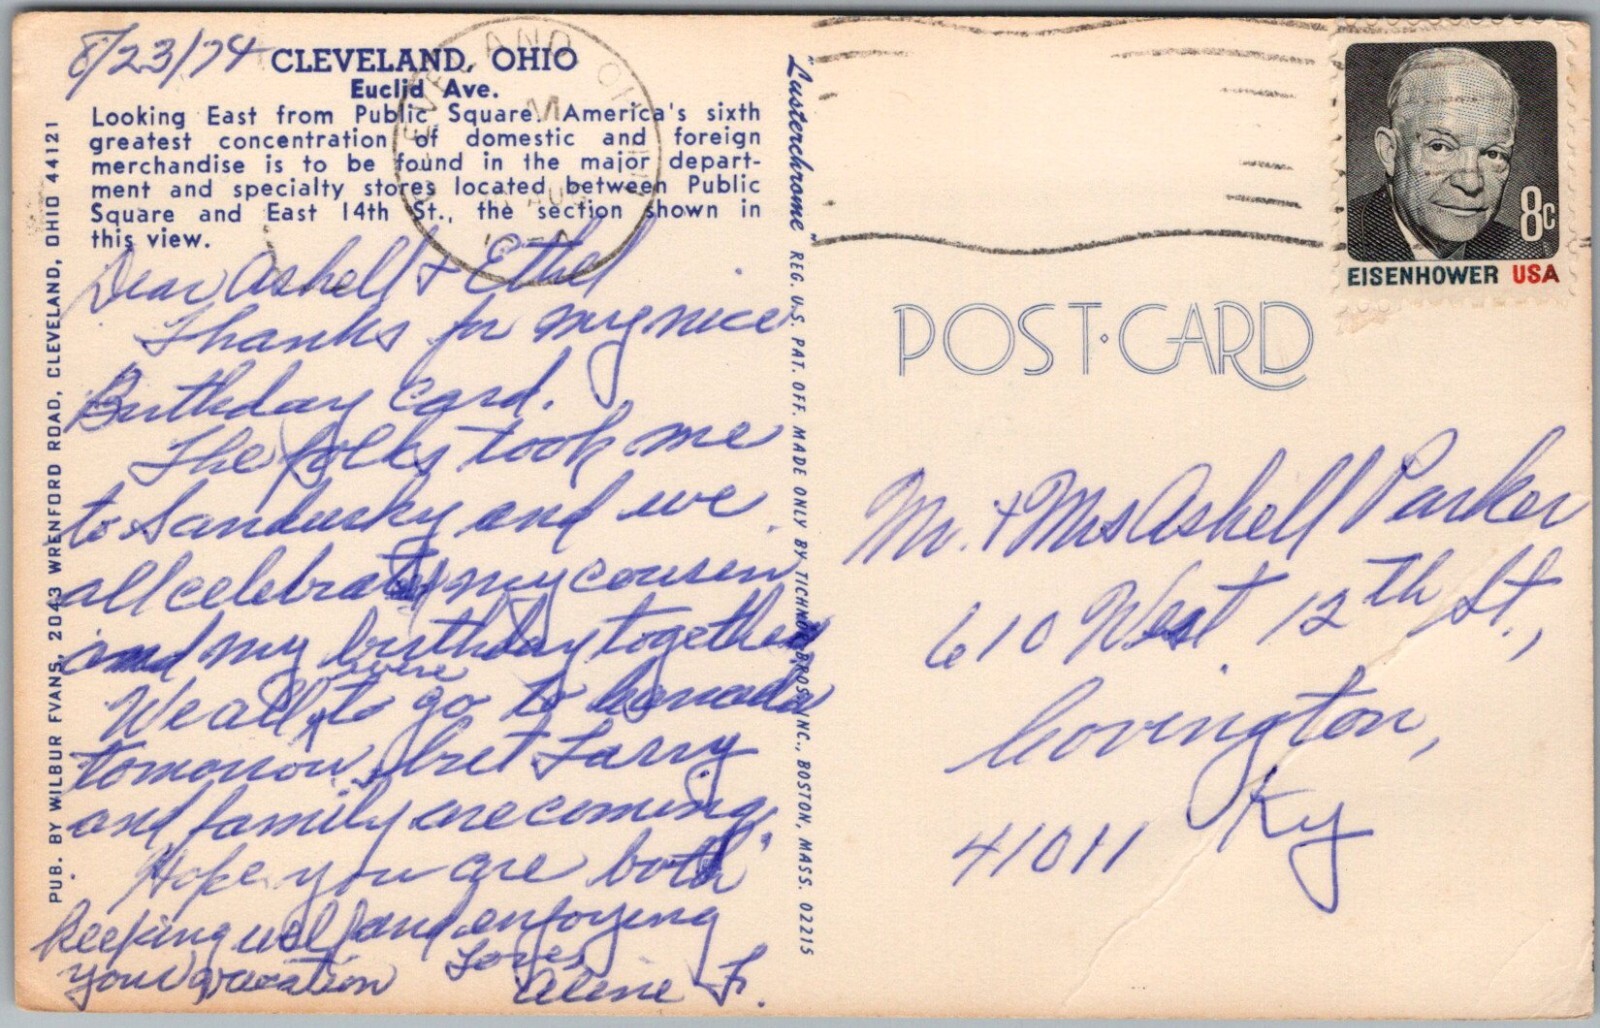 8/23/74
CLEVELAND, OHIO
Euclid Ave.
Looking East from Public Square. America's sixth
greatest concentration of domestic and foreign
merchandise is to be found in the major depart-
ment and specialty stores located between Public
Square and East 14th St., the section shown in
this view.
Dear Ashell & Ethel
Thanks for my nice
Birthday card.
The folks took me
to Sandusky and we
all celebrated my cousin
and my birthday together
We all were to go to Canada
tomorrow, but Larry
and family are coming.
Hope you are both
keeping well and enjoying
your vacation
Love,
Alene F.
PUB. BY WILBUR EVANS, 2043 WRENFORD ROAD, CLEVELAND, OHIO 44121
"Lusterchrome" REG. U.S. PAT. OFF. MADE ONLY BY TICHNOR BROS., INC., BOSTON, MASS. 02215
CLEVELAND OHIO
AUG
8c
EISENHOWER USA
POST·CARD
Mr. + Mrs Ashell Parker
610 West 12th St.,
Covington,
Ky
41011